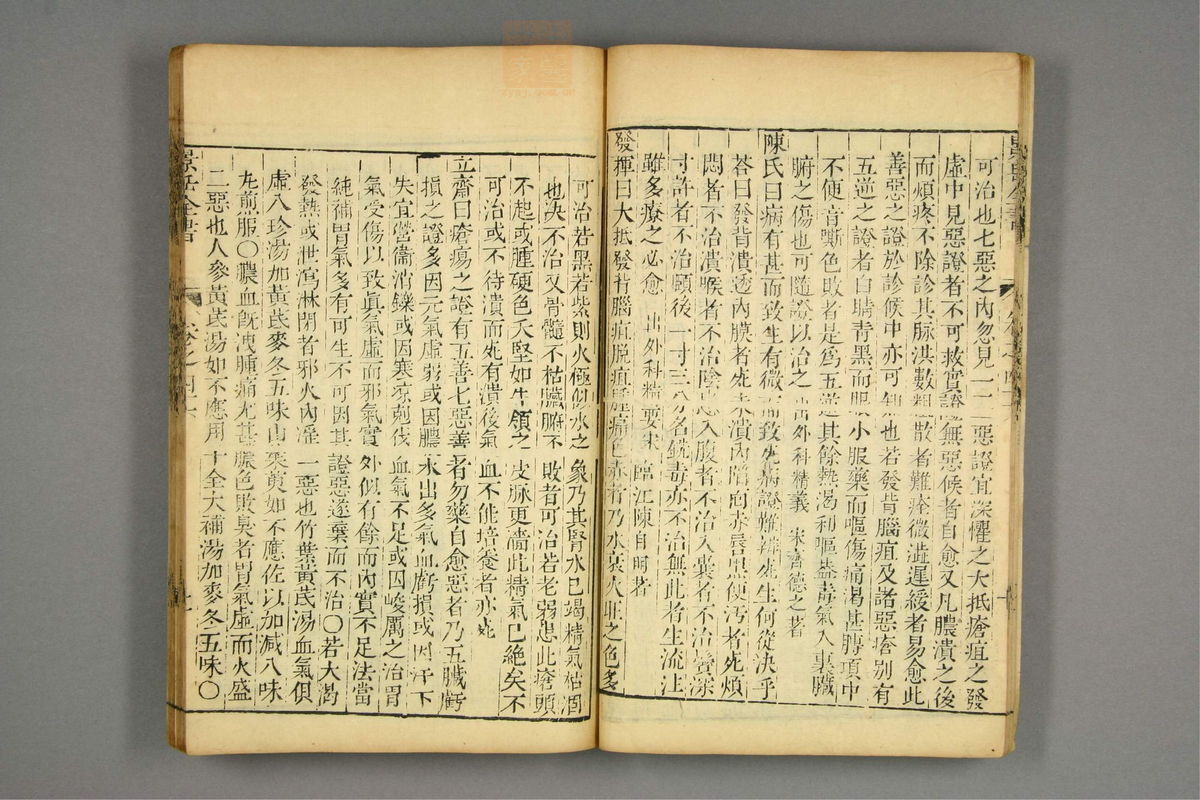 可治也七惡之內忽見一二惡證宜深懼之大抵瘡疽之發
虛中見惡證者不可救實證無惡候者自愈又凡膿潰之後
而煩疼不除診其脉洪數粗散者難痊微澁遲緩者易愈此
善惡之證於診候中亦可知也若發背腦疽及諸惡瘡別有
五逆之證者白睛青黑而眼小服藥而嘔傷痛渴甚膊項中
不便音嘶色敗者是爲五逆其餘熱渴利嘔蓋毒氣入裏臟
腑之傷也可隨證以治之 出外科精義 宋齊德之著
陳氏曰病有甚而致生有微而致死病證難辨死生何從決乎
荅曰發背潰透內膜者死未潰內陷面赤唇黑便污者死煩
悶者不治潰喉者不治陰患入腹者不治入囊者不治鬢深
寸許者不治頤後一寸三分名銳毒亦不治無此者生流注
雖多療之必愈 出外科精要宋臨江陳自明著
發揮曰大抵發背腦疽脫疽腫痛色赤者乃水衰火旺之色多
可治若黑若紫則火極似水之象乃其腎水已竭精氣枯涸
也決不治又骨髓不枯臟腑不敗者可治若老弱患此瘡頭
不起或腫硬色夭堅如牛領之皮脉更濇此精氣已絕矣不
可治或不待潰而死有潰後氣血不能培養者亦死
立齋曰瘡瘍之證有五善七惡善者勿藥自愈惡者乃五臟虧
損之證多因元氣虛弱或因膿水出多氣血虧損或因汗下
失宜營衞消鑠或因寒凉剋伐血氣不足或因峻厲之治胃
氣受傷以致眞氣虛而邪氣實外似有餘而內實不足法當
純補胃氣多有可生不可因其證惡遂棄而不治〇若大渴
發熱或泄瀉淋閉者邪火內淫一惡也竹葉黃芪湯血氣俱
虛八珍湯加黃芪麥冬五味山茱萸如不應佐以加減八味
丸煎服〇膿血旣洩腫痛尤甚膿色敗臭者胃氣虛而火盛
二惡也人參黃芪湯如不應用十全大補湯加麥冬五味〇
景岳全書 卷之四十六